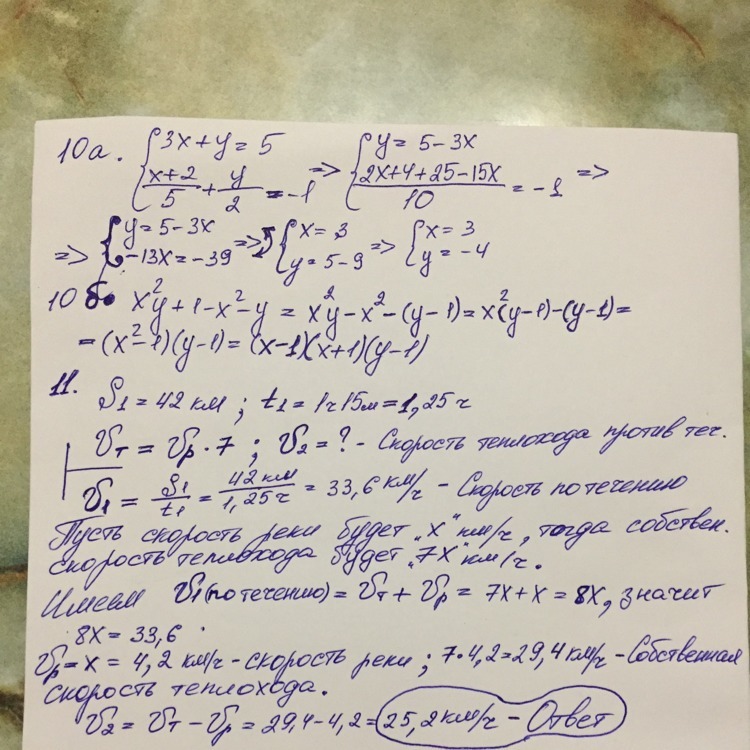 10а. { 3x + y = 5 ; (x+2)/5 + y/2 = -1 => { y = 5 - 3x ; (2x+4+25-15x)/10 = -1 =>
=> { y = 5-3x ; -13x = -39 => { x = 3 ; y = 5-9 => { x = 3 ; y = -4
10 б. x²y + 1 - x² - y = x²y - x² - (y-1) = x²(y-1) - (y-1) =
= (x²-1)(y-1) = (x-1)(x+1)(y-1)
11. S₁ = 42 км ; t₁ = 1ч 15м = 1,25 ч
Vт = Vр · 7 ; V₂ = ? - Скорость теплохода против теч.
V₁ = S₁/t₁ = 42 км/1,25ч = 33,6 км/ч - Скорость по течению
Пусть скорость реки будет „x" км/ч, тогда собствен.
скорость теплохода будет „7x" км/ч.
Имеем V₁(по течению) = Vт + Vр = 7x + x = 8x, значит
8x = 33,6.
Vр = x = 4,2 км/ч - скорость реки ; 7·4,2 = 29,4 км/ч - Собственная
скорость теплохода.
V₂ = Vт - Vр = 29,4 - 4,2 = 25,2 км/ч - Ответ